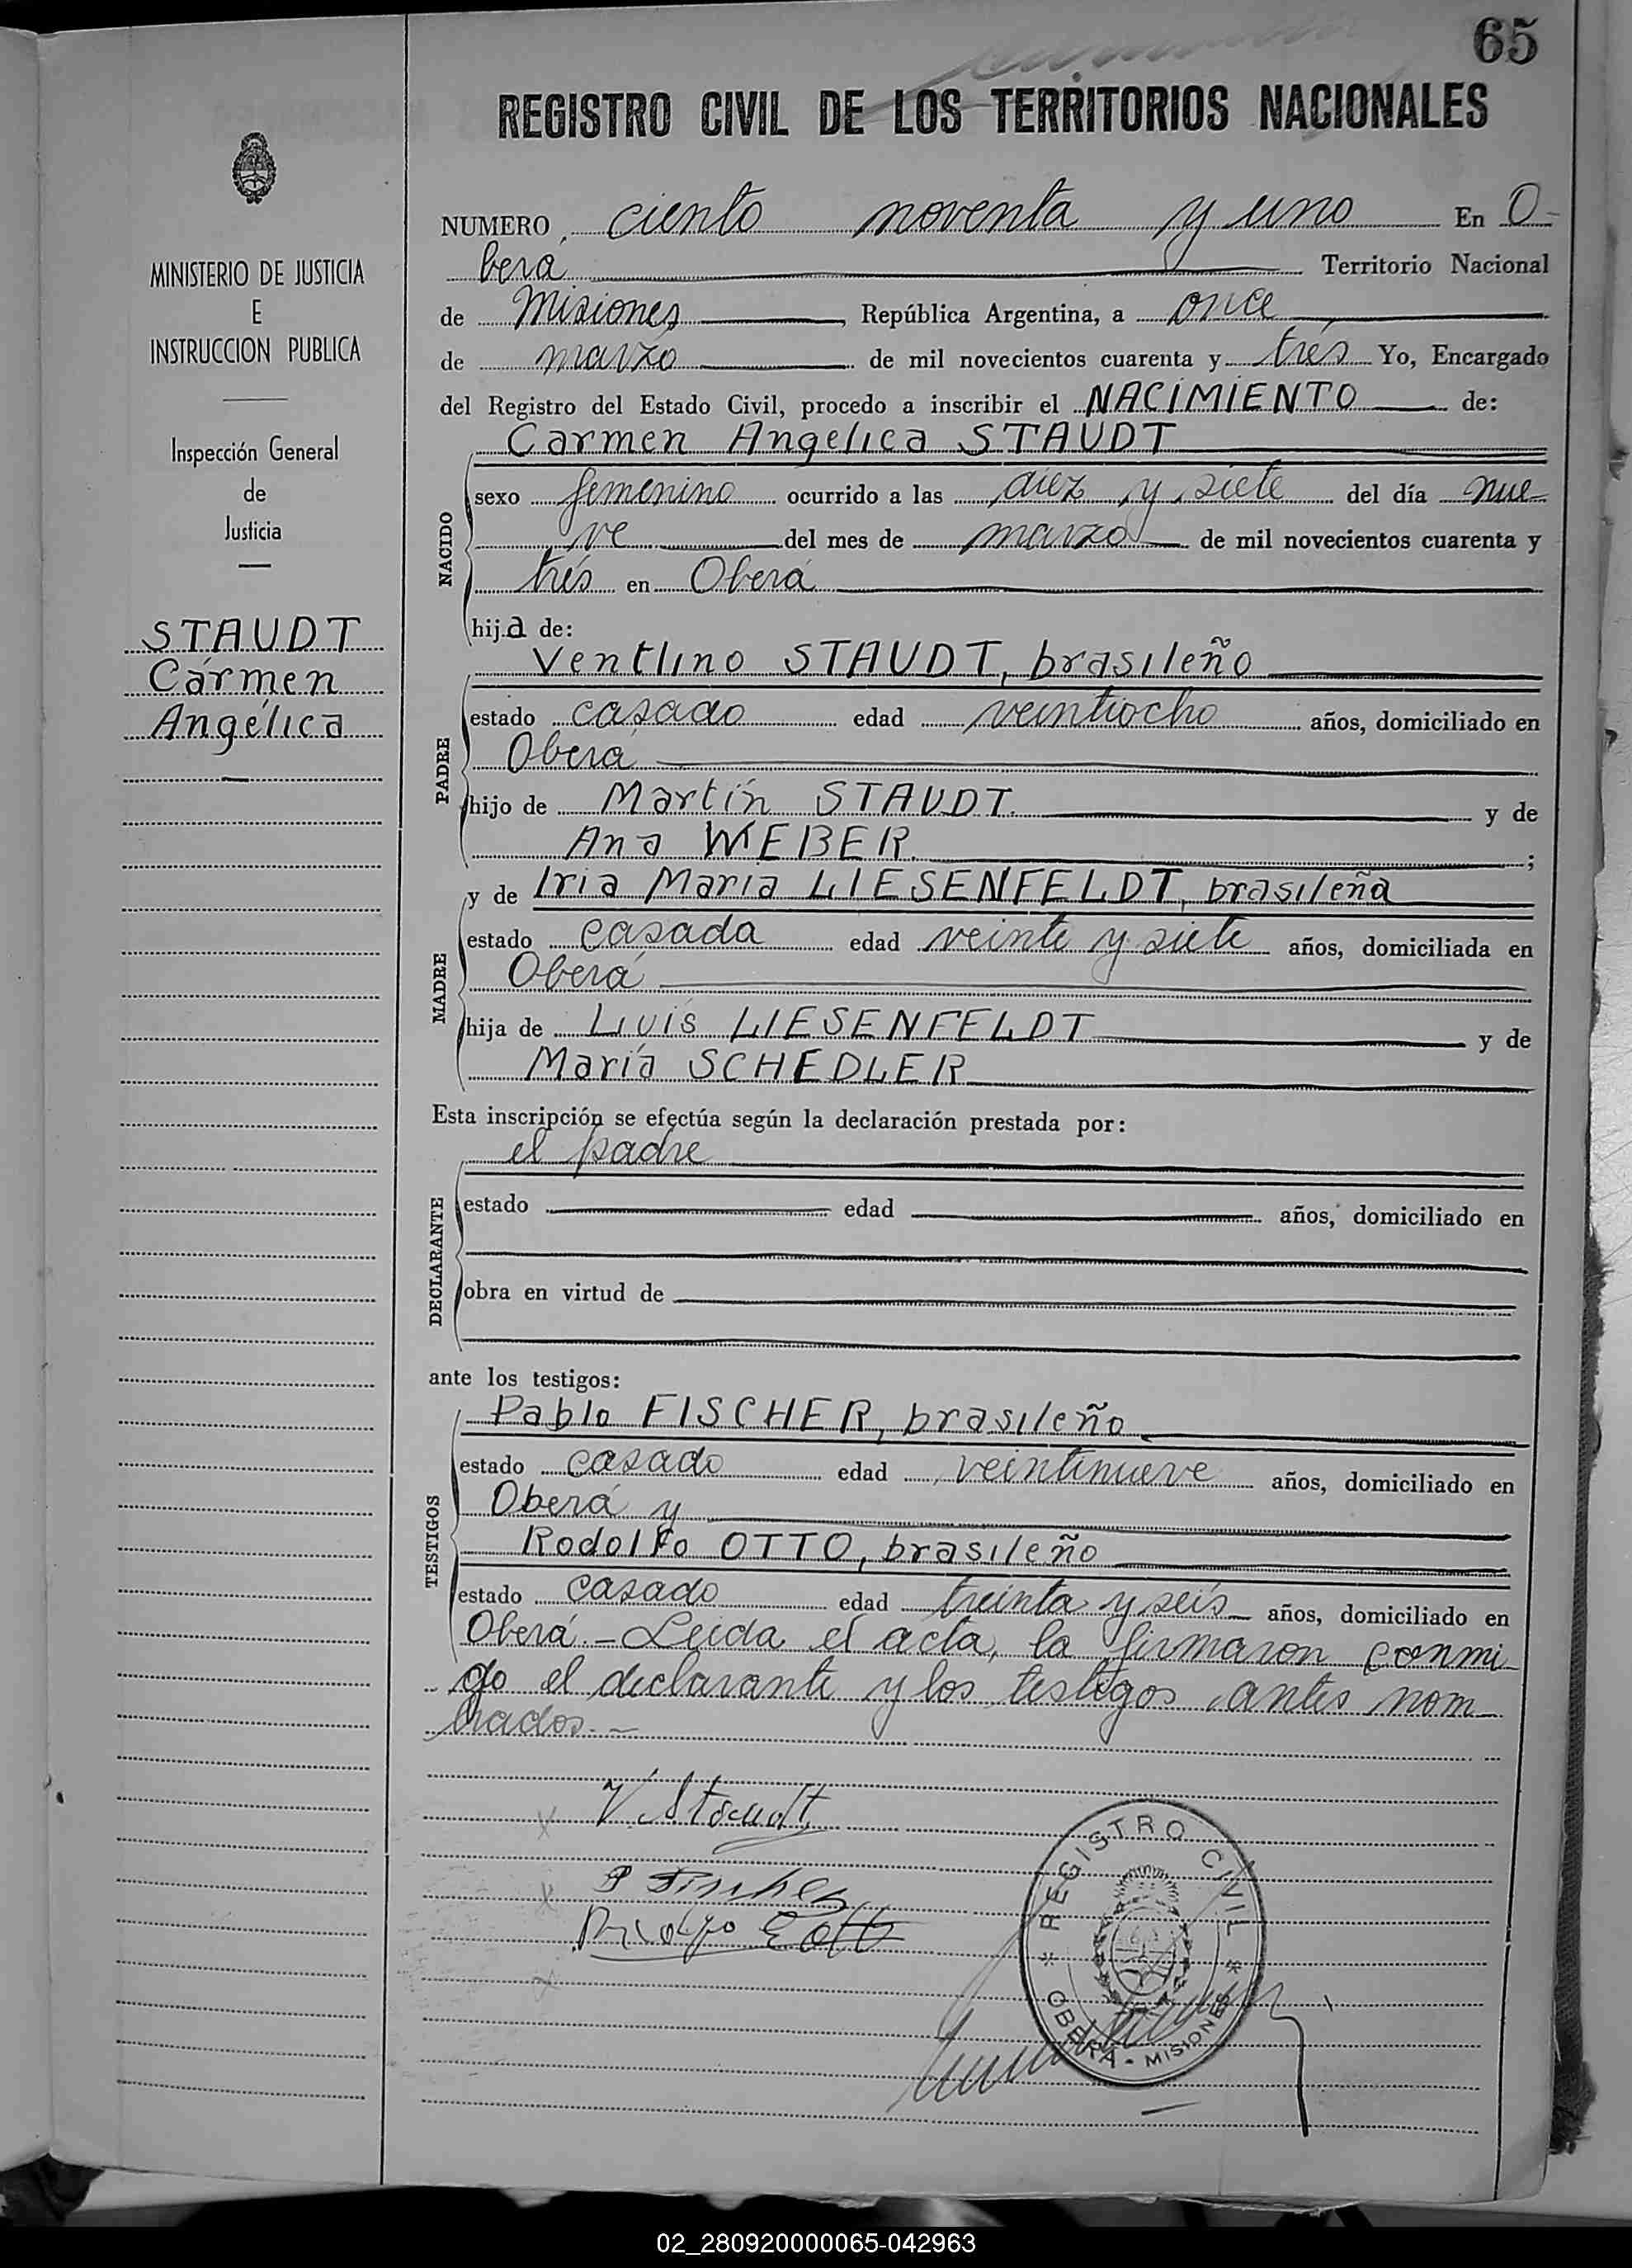 65
REGISTRO CIVIL DE LOS TERRITORIOS NACIONALES
MINISTERIO DE JUSTICIA
E
INSTRUCCION PUBLICA
Inspección General
de
Justicia
STAUDT
Cármen
Angélica
NUMERO ciento noventa y uno En O-
berá Territorio Nacional
de Misiones, República Argentina, a once
de marzo de mil novecientos cuarenta y trés Yo, Encargado
del Registro del Estado Civil, procedo a inscribir el NACIMIENTO de:
Carmen Angelica STAUDT
NACIDO
sexo femenino ocurrido a las diez y siete del día nue-
ve del mes de marzo de mil novecientos cuarenta y
trés en Oberá
hija de:
Ventlino STAUDT, brasileño
PADRE
estado casado edad veintiocho años, domiciliado en
Oberá
hijo de Martín STAUDT. y de
Ana WEBER. ;
y de Iria Maria LIESENFELDT, brasileña
MADRE
estado casada edad veinte y siete años, domiciliada en
Oberá
hija de Luis LIESENFELDT y de
María SCHEDLER
Esta inscripción se efectúa según la declaración prestada por:
el padre
DECLARANTE
estado edad años, domiciliado en
obra en virtud de
ante los testigos:
Pablo FISCHER, brasileño
TESTIGOS
estado casado edad veintinueve años, domiciliado en
Oberá y
Rodolfo OTTO, brasileño
estado casado edad treinta y seis años, domiciliado en
Oberá.- Leida el acta, la firmaron conmi-
go el declarante y los testigos antes nom-
brados.-
V. Staudt
P Fischer
REGISTRO CIVIL
OBERÁ - MISIONES
02_280920000065-042963